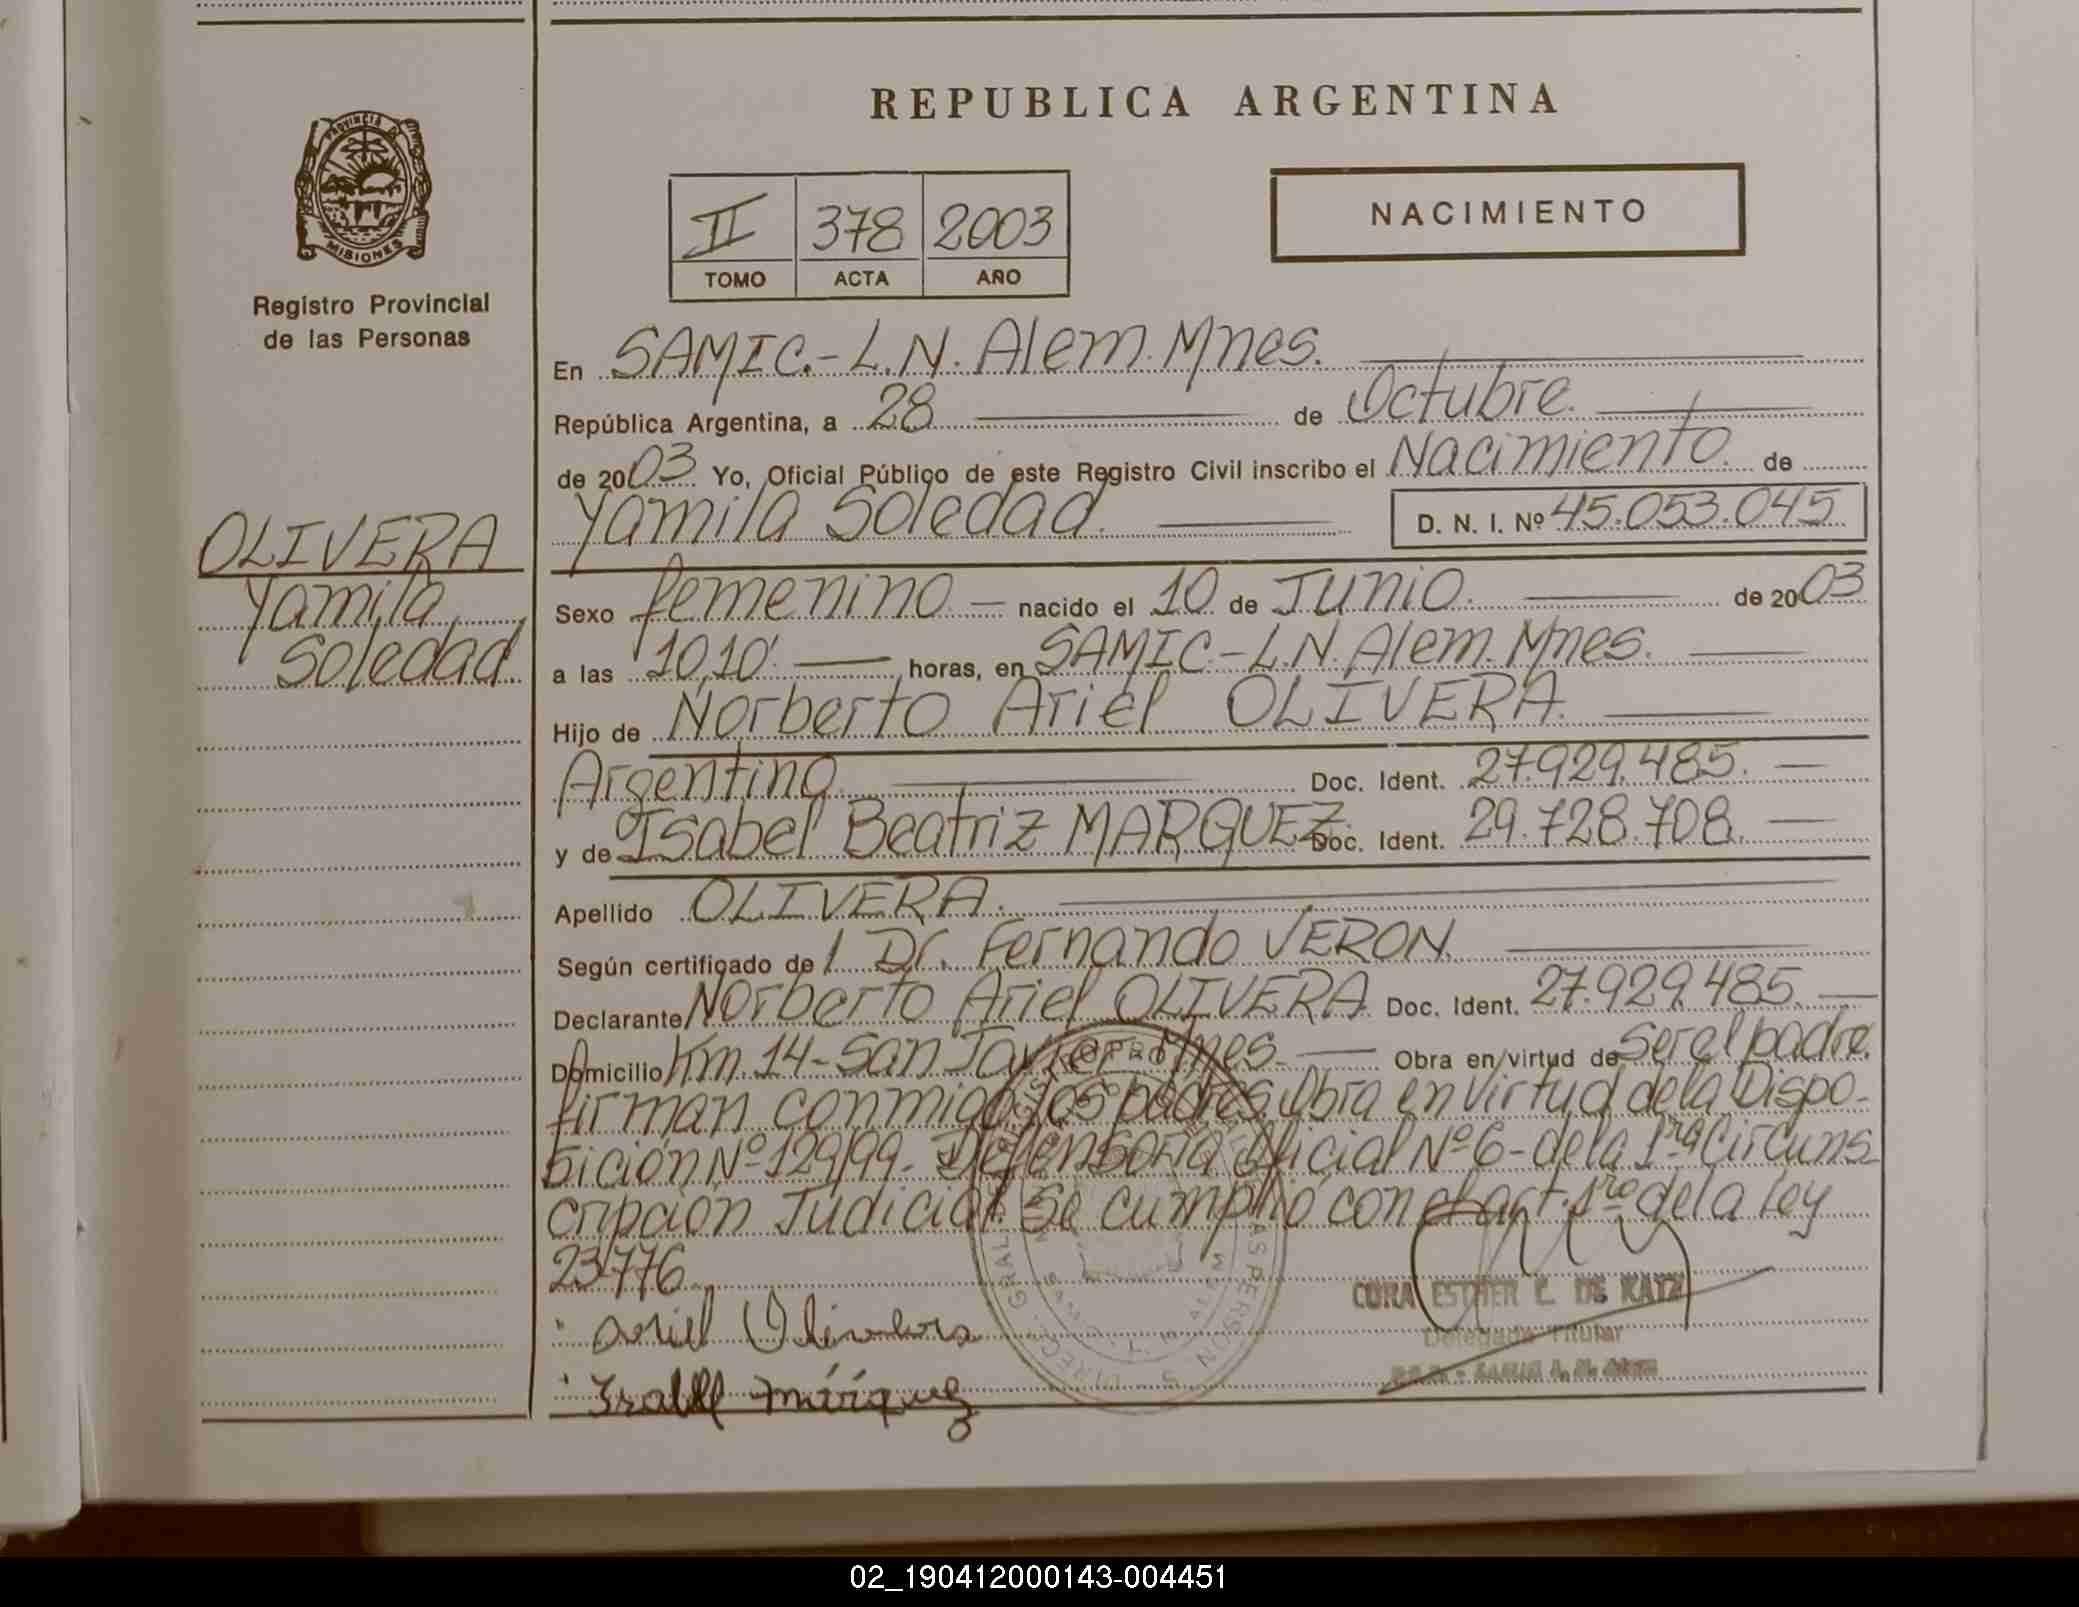 REPUBLICA ARGENTINA
PROVINCIA DE
MISIONES
Registro Provincial
de las Personas
II 378 2003
TOMO ACTA AÑO
NACIMIENTO
En SAMIC.-L.N. Alem. Mnes.
República Argentina, a 28 de Octubre.
de 2003 Yo, Oficial Público de este Registro Civil inscribo el Nacimiento. de
Yamila Soledad. D. N. I. Nº 45.053.045
OLIVERA
Yamila
Soledad.
Sexo femenino. nacido el 10 de Junio. de 2003
a las 10,10' horas, en SAMIC.-L.N. Alem. Mnes.
Hijo de Norberto Ariel OLIVERA.
Argentino. Doc. Ident. 27.929.485.
y de Isabel Beatriz MARQUEZ. Doc. Ident. 29.728.708.
Apellido OLIVERA.
Según certificado de / Dr. Fernando VERON.
Declarante Norberto Ariel OLIVERA Doc. Ident. 27.929.485.
Domicilio Km. 14-San Javier Mnes. Obra en virtud de Ser el padre
firman conmigo los padres. Obra en Virtud de la Dispo-
sición Nº 129/99. Defensoria Oficial Nº 6- de la 1ra Circuns
cripción Judicial. Se cumplió con el art. 1ro de la Ley
23776.
Ariel Olivera
Isabel márquez
CORA ESTHER C. DE KATZ
Delegada Titular
02_190412000143-004451